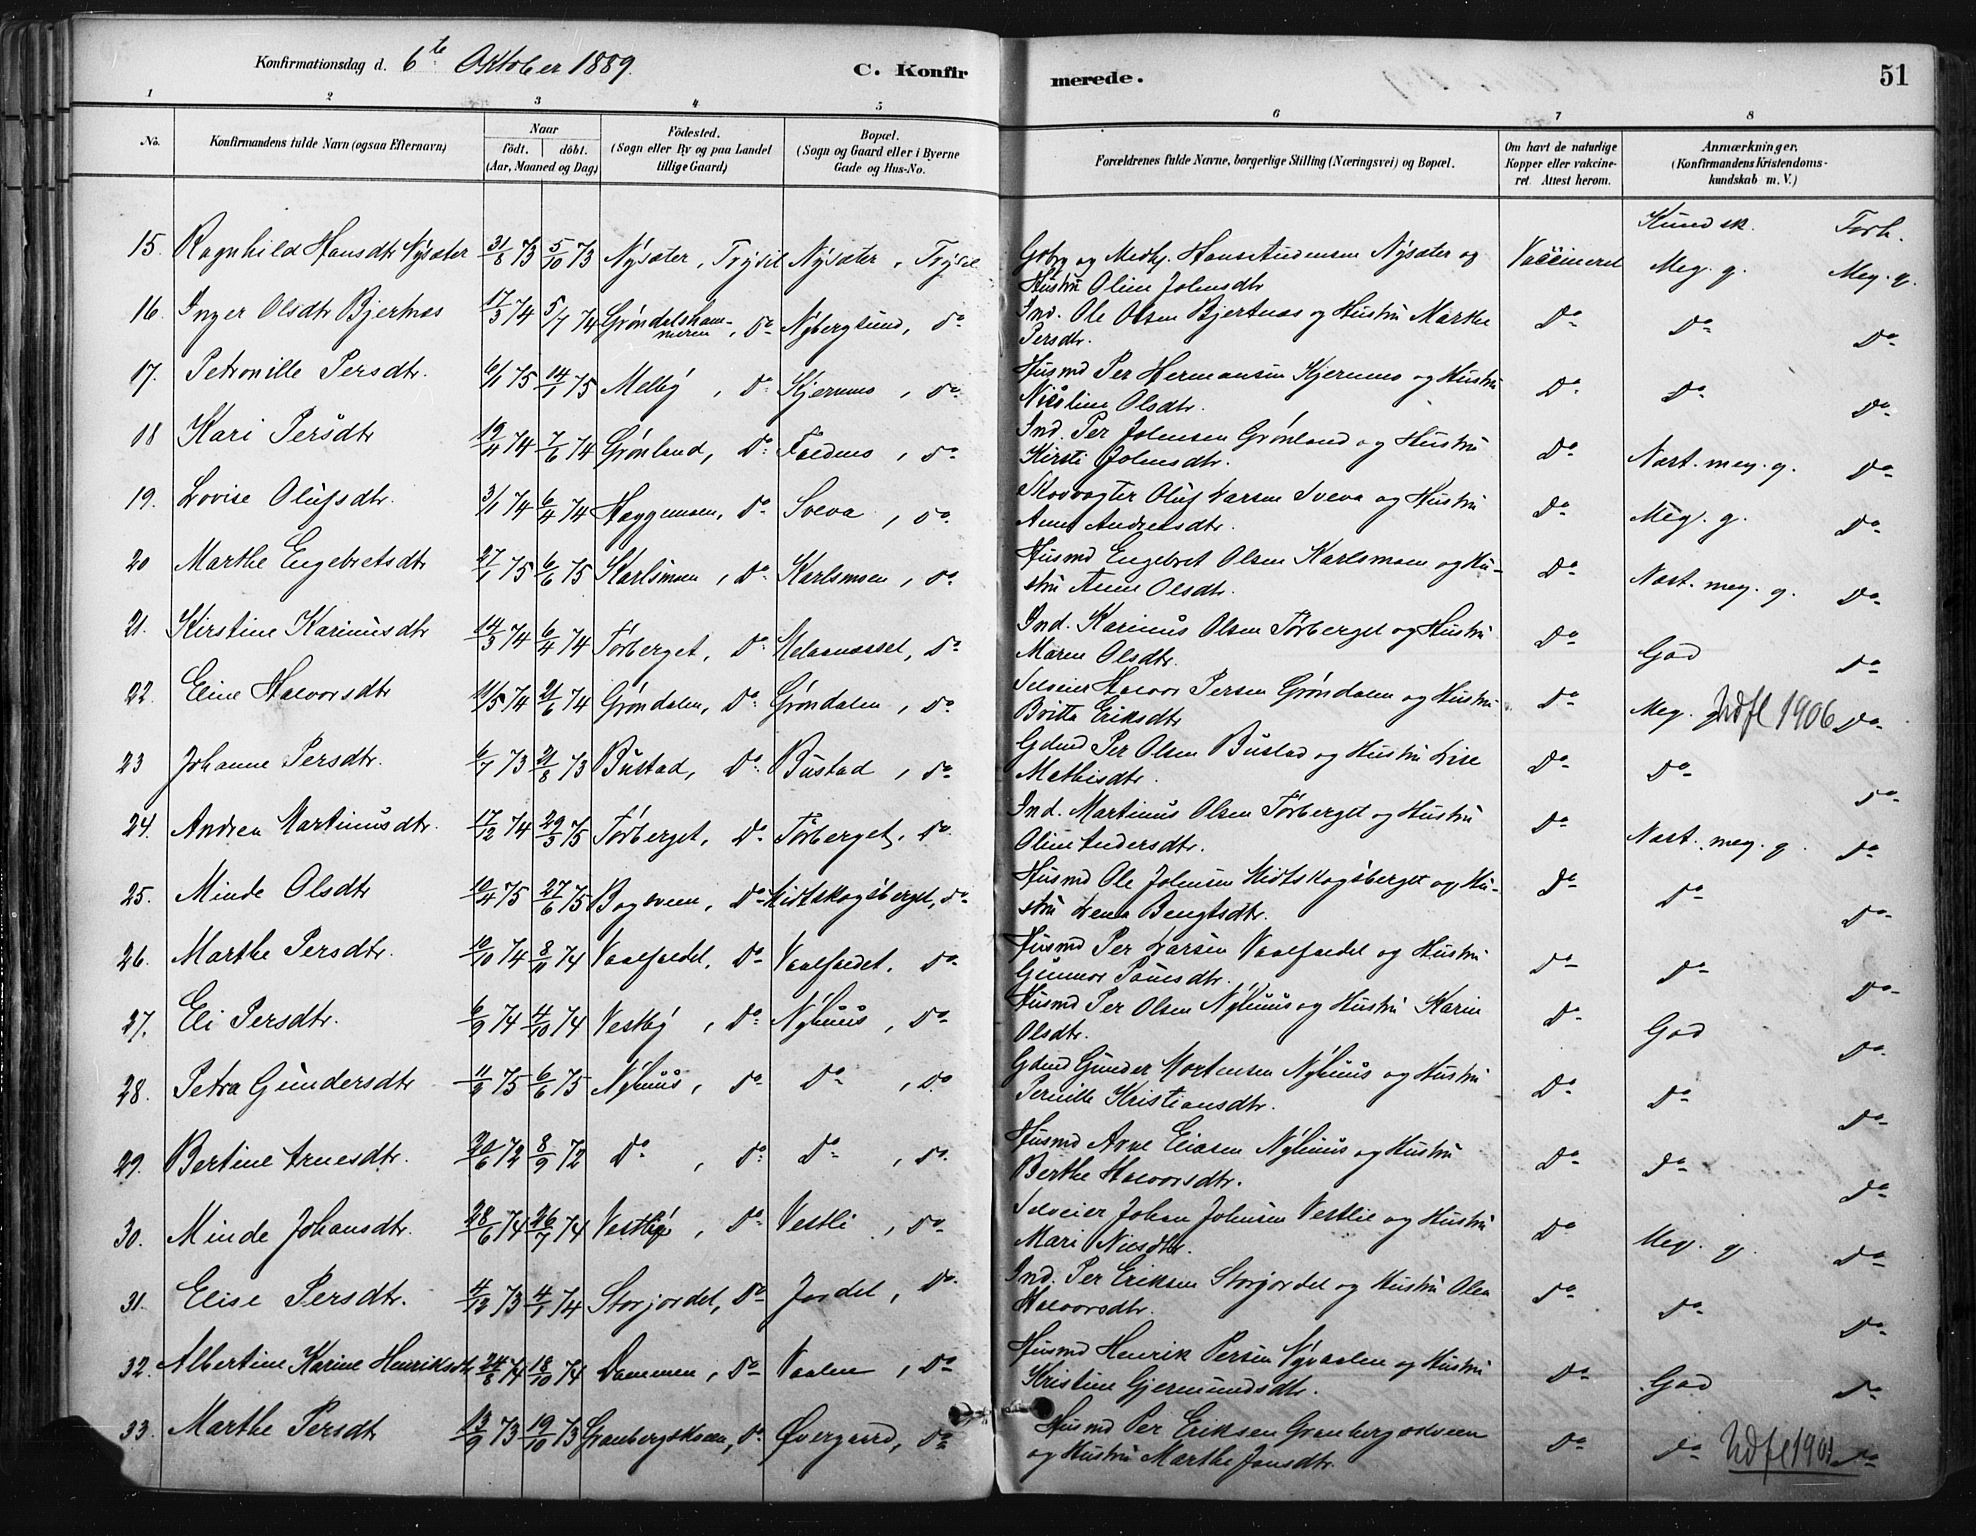 Konfirmationsdag d. 6te Oktober 1889.
C. Konfir
merede.
51
1 2 3 4 5 6 7 8
No.
Konfirmandens fulde Navn (ogsaa Efternavn)
Naar
födt. döbt.
(Aar, Maaned og Dag)
Födested.
(Sogn eller By og paa Landet
tillige Gaard)
Bopæl.
(Sogn og Gaard eller i Byerne
Gade og Hus-No.
Forældrenes fulde Navne, borgerlige Stilling (Næringsvei) og Bopæl.
Om havt de naturlige
Kopper eller vakcine-
ret. Attest herom.
Anmærkninger,
(Konfirmandens Kristendoms-
kundskab m. V.)
Kundsk. Forh.
15. Ragnhild Hansdtr Nysæter 31/8 73 5/10 73 Nysæter, Trysil Nysæter, Trysil Gdbr. og Medhj. Hans Andersen Nysæter og Vaccineret Meg. g. Meg. g.
Hustru Oline Johnsdtr
16. Inger Olsdtr Bjertnæs 17/3 74 5/7 74 Gröndalsham-
meren, Do Nybergsund, Do Ind. Ole Olsen Bjertnæs og Hustru Marthe Do Do Do
Persdtr.
17. Petronille Persdtr. 6/1 75 14/1 75 Melby, Do Kjernmo, Do Husmd Per Hermansen Kjernmo og Hustru Do Do Do
Nicoline Olsdtr.
18 Kari Persdtr 19/4 74 7/6 74 Grönland, Do Faldmo, Do Ind. Per Johnsen Grönland og Hustru Do Næst. meg. g. Do
Kirsti Johnsdtr.
19. Lovise Olufsdtr. 3/1 74 6/4 74 Haggemoen, Do Sveva, Do Skovvogter Oluf Larsen Sveva og Hustru Do Meg. g. Do
Anne Andreasdtr.
20 Marthe Engebretsdtr 27/1 75 6/6 75 Karlsmoen, Do Karlsmoen, Do Husmd Engebret Olsen Karlsmoen og Hu- Do Næst. meg. g. Do
stru Anne Olsdtr.
21. Kirstine Karinusdtr 14/3 74 6/4 74 Törberget, Do Melaanæsset, Do Ind. Karinus Olsen Törberget og Hustru Do God Do
Maren Olsdtr.
22 Eline Halvorsdtr 11/5 74 21/6 74 Gröndalen, Do Gröndalen, Do Selveier Halvor Persen Gröndalen og Hustru Do Meg. g. Udfl 1906 Do
Britta Eriksdtr
23 Johanne Persdtr. 6/7 73 21/8 73 Bustad, Do Bustad, Do Gdmd Per Olsen Bustad og Hustru Lise Do Do Do
Mathisdtr.
24. Andrea Martinusdtr. 17/12 74 29/3 75 Törberget, Do Törberget, Do Ind. Martinus Olsen Törberget og Hustru Do Næst. meg. g. Do
Oline Andersdtr.
25. Minde Olsdtr 10/4 75 27/6 75 Bogsveen, Do Midtskogsberget, Do Husmd Ole Johnsen Midtskogsberget og Hu- Do Do Do
stru Lena Bengtsdtr.
26. Marthe Persdtr. 10/10 74 8/10 74 Vaalfaldet, Do Vaalfaldet, Do Husmd Per Larsen Vaalfaldet og Hustru Do Do Do
Gunnor Paulsdtr.
27. Eli Persdtr. 6/9 74 4/10 74 Vestby, Do Nyhuus, Do Husmd Per Olsen Nyhuus og Hustru Karin Do God Do
Olsdtr.
28. Petra Gundersdtr 11/2 75 6/6 75 Nyhuus, Do Do, Do Gdmd Gunder Mortensen Nyhuus og Hustru Do Do Do
Pernille Kristiansdtr.
29. Bertine Arnesdtr. 30/6 72 8/9 72 Do, Do Do, Do Husmd Arne Eliasen Nyhuus og Hustru Do Do Do
Berthe Halvorsdtr.
30. Minde Johansdtr. 28/6 74 26/7 74 Vestby, Do Vestli, Do Selveier Johan Johnsen Vestlie og Hustru Do Meg. g. Do
Mari Nilsdtr.
31. Elise Persdtr. 11/12 73 4/1 74 Storjordet, Do Jordet, Do Ind. Per Eriksen Storjordet og Hustru Olea Do Do Do
Halvorsdtr.
32. Albertine Karine Henriksdtr 24/8 74 18/10 74 Dammen, Do Vaalen, Do Husmd Henrik Persen Nyvaalen og Hustru Do God Do
Kristine Gjermundsdtr.
33. Marthe Persdtr 13/9 73 19/10 73 Granbergskoien, Do Övergaard, Do Husmd Per Eriksen Granbergsdveen Do Do Udfl 1901 Do
og Hustru Marthe Jonsdtr.